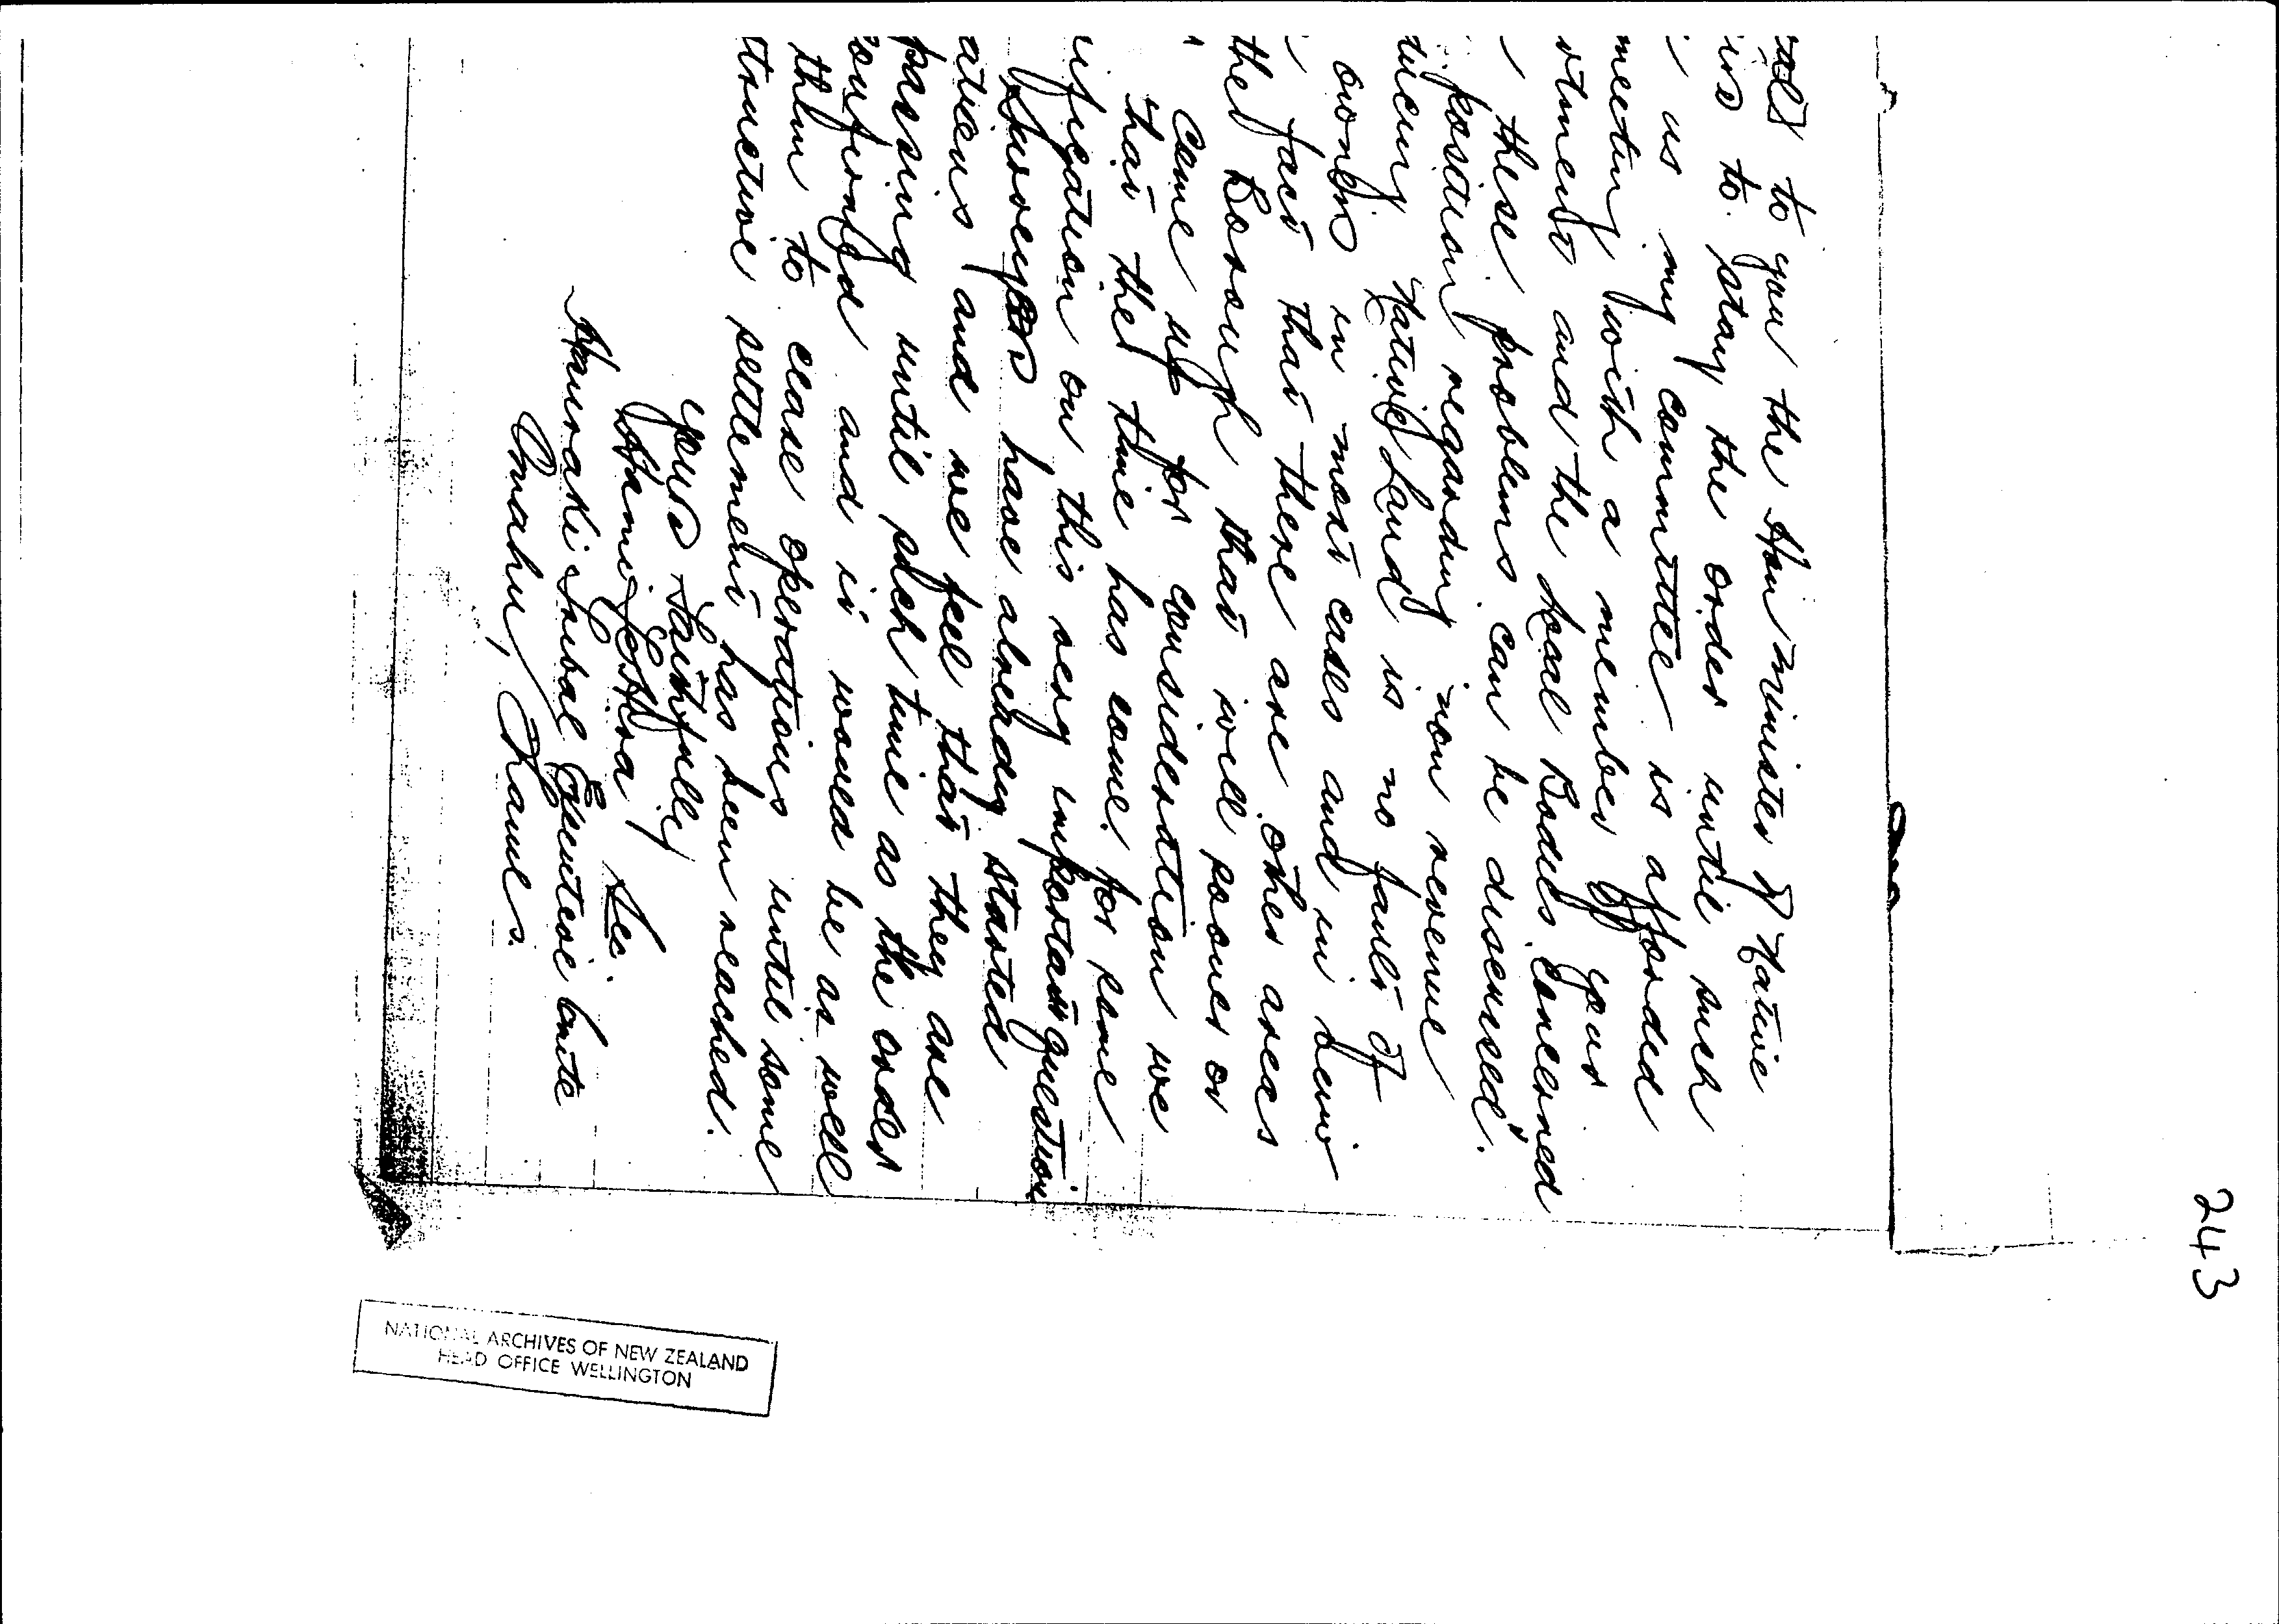 243
to you the Hon Minister of Native
to stay the order until such
as my committee is afforded
meeting with a member of your
and the Local Bodies concerned
these problems can be discussed.
position regarding non revenue
ducing Native Land is no fault of
owners in most cases and in view
fact that there are other areas
the Borough that will sooner or
come up for consideration we
that the time has come for some
ification on this very important question
Surveyors have already started
ations and we feel that they are
passing until such time as the order
confirmed and it would be as well
them to cease operations until some
structive settlement has been reached.
yours Faithfully
Sec.
Hauraki Tribal Executive Cmte
Omahu, Thames.
NATIONAL ARCHIVES OF NEW ZEALAND
HEAD OFFICE WELLINGTON